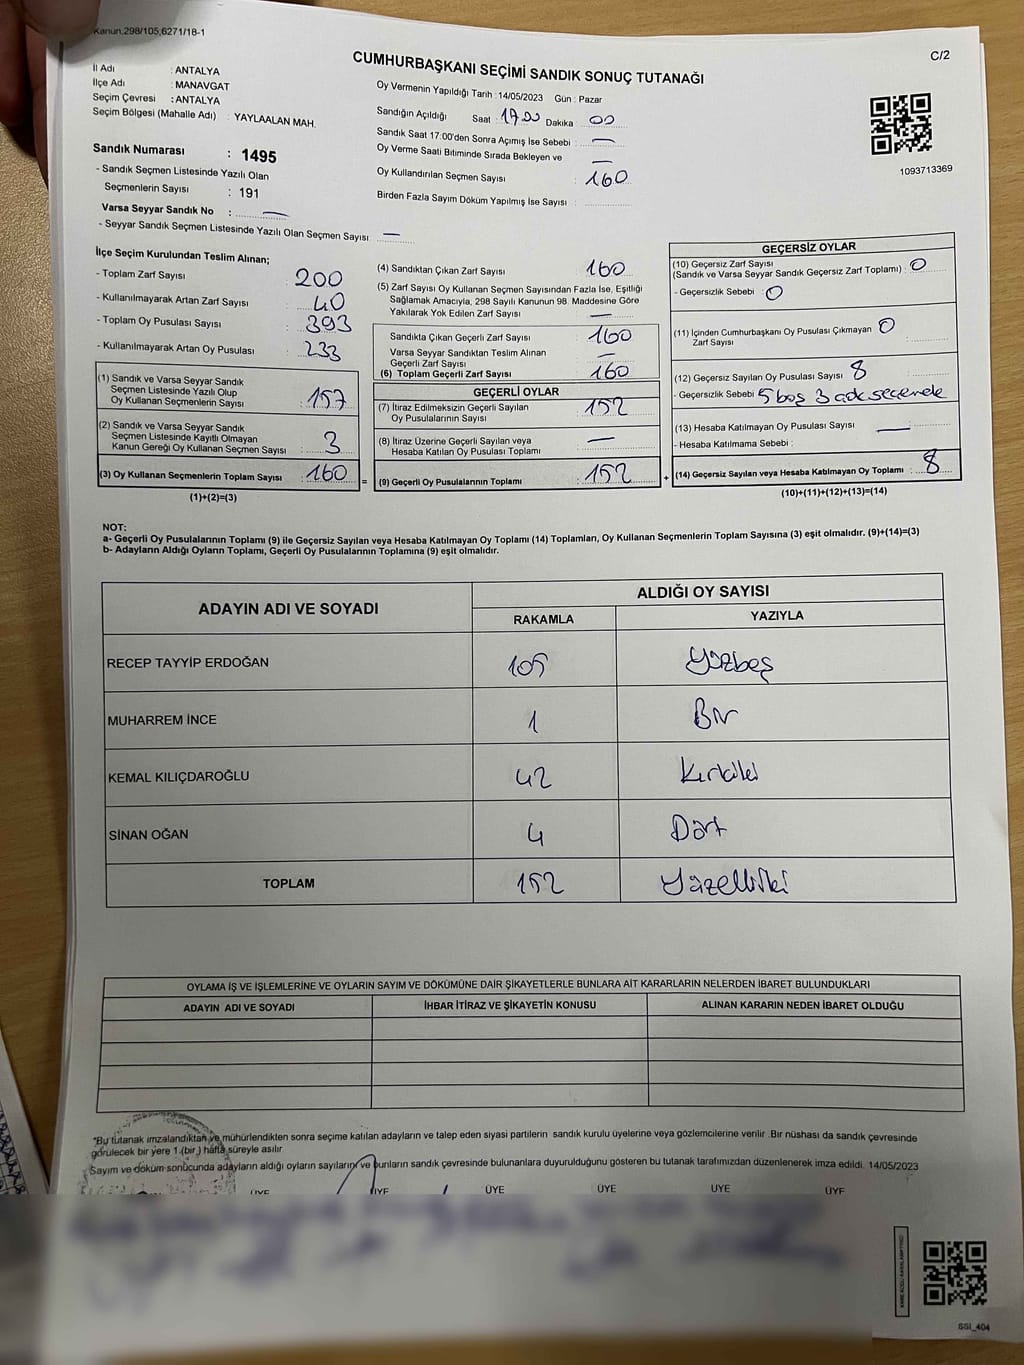 Kanun.298/105,6271/18-1
C/2
CUMHURBAŞKANI SEÇİMİ SANDIK SONUÇ TUTANAĞI
İl Adı : ANTALYA
İlçe Adı : MANAVGAT
Seçim Çevresi : ANTALYA
Seçim Bölgesi (Mahalle Adı) : YAYLAALAN MAH.
Sandık Numarası : 1495
- Sandık Seçmen Listesinde Yazılı Olan
Seçmenlerin Sayısı : 191
Varsa Seyyar Sandık No : —
- Seyyar Sandık Seçmen Listesinde Yazılı Olan Seçmen Sayısı —
Oy Vermenin Yapıldığı Tarih : 14/05/2023 Gün : Pazar
Sandığın Açıldığı Saat : 17.00 Dakika 00
Sandık Saat 17:00'den Sonra Açımış İse Sebebi : —
Oy Verme Saati Bitiminde Sırada Bekleyen ve —
Oy Kullandırılan Seçmen Sayısı : 160
Birden Fazla Sayım Döküm Yapılmış İse Sayısı :
1093713369
İlçe Seçim Kurulundan Teslim Alınan;
- Toplam Zarf Sayısı : 200
- Kullanılmayarak Artan Zarf Sayısı : 40
- Toplam Oy Pusulası Sayısı : 393
- Kullanılmayarak Artan Oy Pusulası : 233
(1) Sandık ve Varsa Seyyar Sandık
Seçmen Listesinde Yazılı Olup
Oy Kullanan Seçmenlerin Sayısı : 157
(2) Sandık ve Varsa Seyyar Sandık
Seçmen Listesinde Kayıtlı Olmayan
Kanun Gereği Oy Kullanan Seçmen Sayısı : 3
(3) Oy Kullanan Seçmenlerin Toplam Sayısı : 160
(1)+(2)=(3)
(4) Sandıktan Çıkan Zarf Sayısı : 160
(5) Zarf Sayısı Oy Kullanan Seçmen Sayısından Fazla İse, Eşitliği
Sağlamak Amacıyla, 298 Sayılı Kanunun 98. Maddesine Göre
Yakılarak Yok Edilen Zarf Sayısı : —
Sandıkta Çıkan Geçerli Zarf Sayısı : 160
Varsa Seyyar Sandıktan Teslim Alınan —
Geçerli Zarf Sayısı
(6) Toplam Geçerli Zarf Sayısı : 160
GEÇERLİ OYLAR
(7) İtiraz Edilmeksizin Geçerli Sayılan : 152
Oy Pusulasının Sayısı
(8) İtiraz Üzerine Geçerli Sayılan veya —
Hesaba Katılan Oy Pusulası Toplamı :
(9) Geçerli Oy Pusulalarının Toplamı : 152
=
+
GEÇERSİZ OYLAR
(10) Geçersiz Zarf Sayısı
(Sandık ve Varsa Seyyar Sandık Geçersiz Zarf Toplamı) : 0
- Geçersizlik Sebebi : 0
(11) İçinden Cumhurbaşkanı Oy Pusulası Çıkmayan 0
Zarf Sayısı
(12) Geçersiz Sayılan Oy Pusulası Sayısı : 8
- Geçersizlik Sebebi 5 boş 3 adk seçenek
(13) Hesaba Katılmayan Oy Pusulası Sayısı : —
- Hesaba Katılmama Sebebi :
(14) Geçersiz Sayılan veya Hesaba Katılmayan Oy Toplamı : 8
(10)+(11)+(12)+(13)=(14)
NOT:
a- Geçerli Oy Pusulalarının Toplamı (9) ile Geçersiz Sayılan veya Hesaba Katılmayan Oy Toplamı (14) Toplamları, Oy Kullanan Seçmenlerin Toplam Sayısına (3) eşit olmalıdır. (9)+(14)=(3)
b- Adayların Aldığı Oyların Toplamı, Geçerli Oy Pusulalarının Toplamına (9) eşit olmalıdır.
ADAYIN ADI VE SOYADI
ALDIĞI OY SAYISI
RAKAMLA YAZIYLA
RECEP TAYYİP ERDOĞAN 105 Yüzbeş
MUHARREM İNCE 1 Bir
KEMAL KILIÇDAROĞLU 42 Kırkiki
SİNAN OĞAN 4 Dört
TOPLAM 152 Yüzelliiki
OYLAMA İŞ VE İŞLEMLERİNE VE OYLARIN SAYIM VE DÖKÜMÜNE DAİR ŞİKAYETLERLE BUNLARA AİT KARARLARIN NELERDEN İBARET BULUNDUKLARI
ADAYIN ADI VE SOYADI İHBAR İTİRAZ VE ŞİKAYETİN KONUSU ALINAN KARARIN NEDEN İBARET OLDUĞU
"Bu tutanak imzalandıktan ve mühürlendikten sonra seçime katılan adayların ve talep eden siyasi partilerin sandık kurulu üyelerine veya gözlemcilerine verilir .Bir nüshası da sandık çevresinde
görülecek bir yere 1.(bir.) hafta süreyle asılır.
Sayım ve döküm sonucunda adayların aldığı oyların sayılarını ve bunların sandık çevresinde bulunanlara duyurulduğunu gösteren bu tutanak tarafımızdan düzenlenerek imza edildi. 14/05/2023
ÜYE ÜYE ÜYE ÜYE ÜYE ÜYE
SSI_404